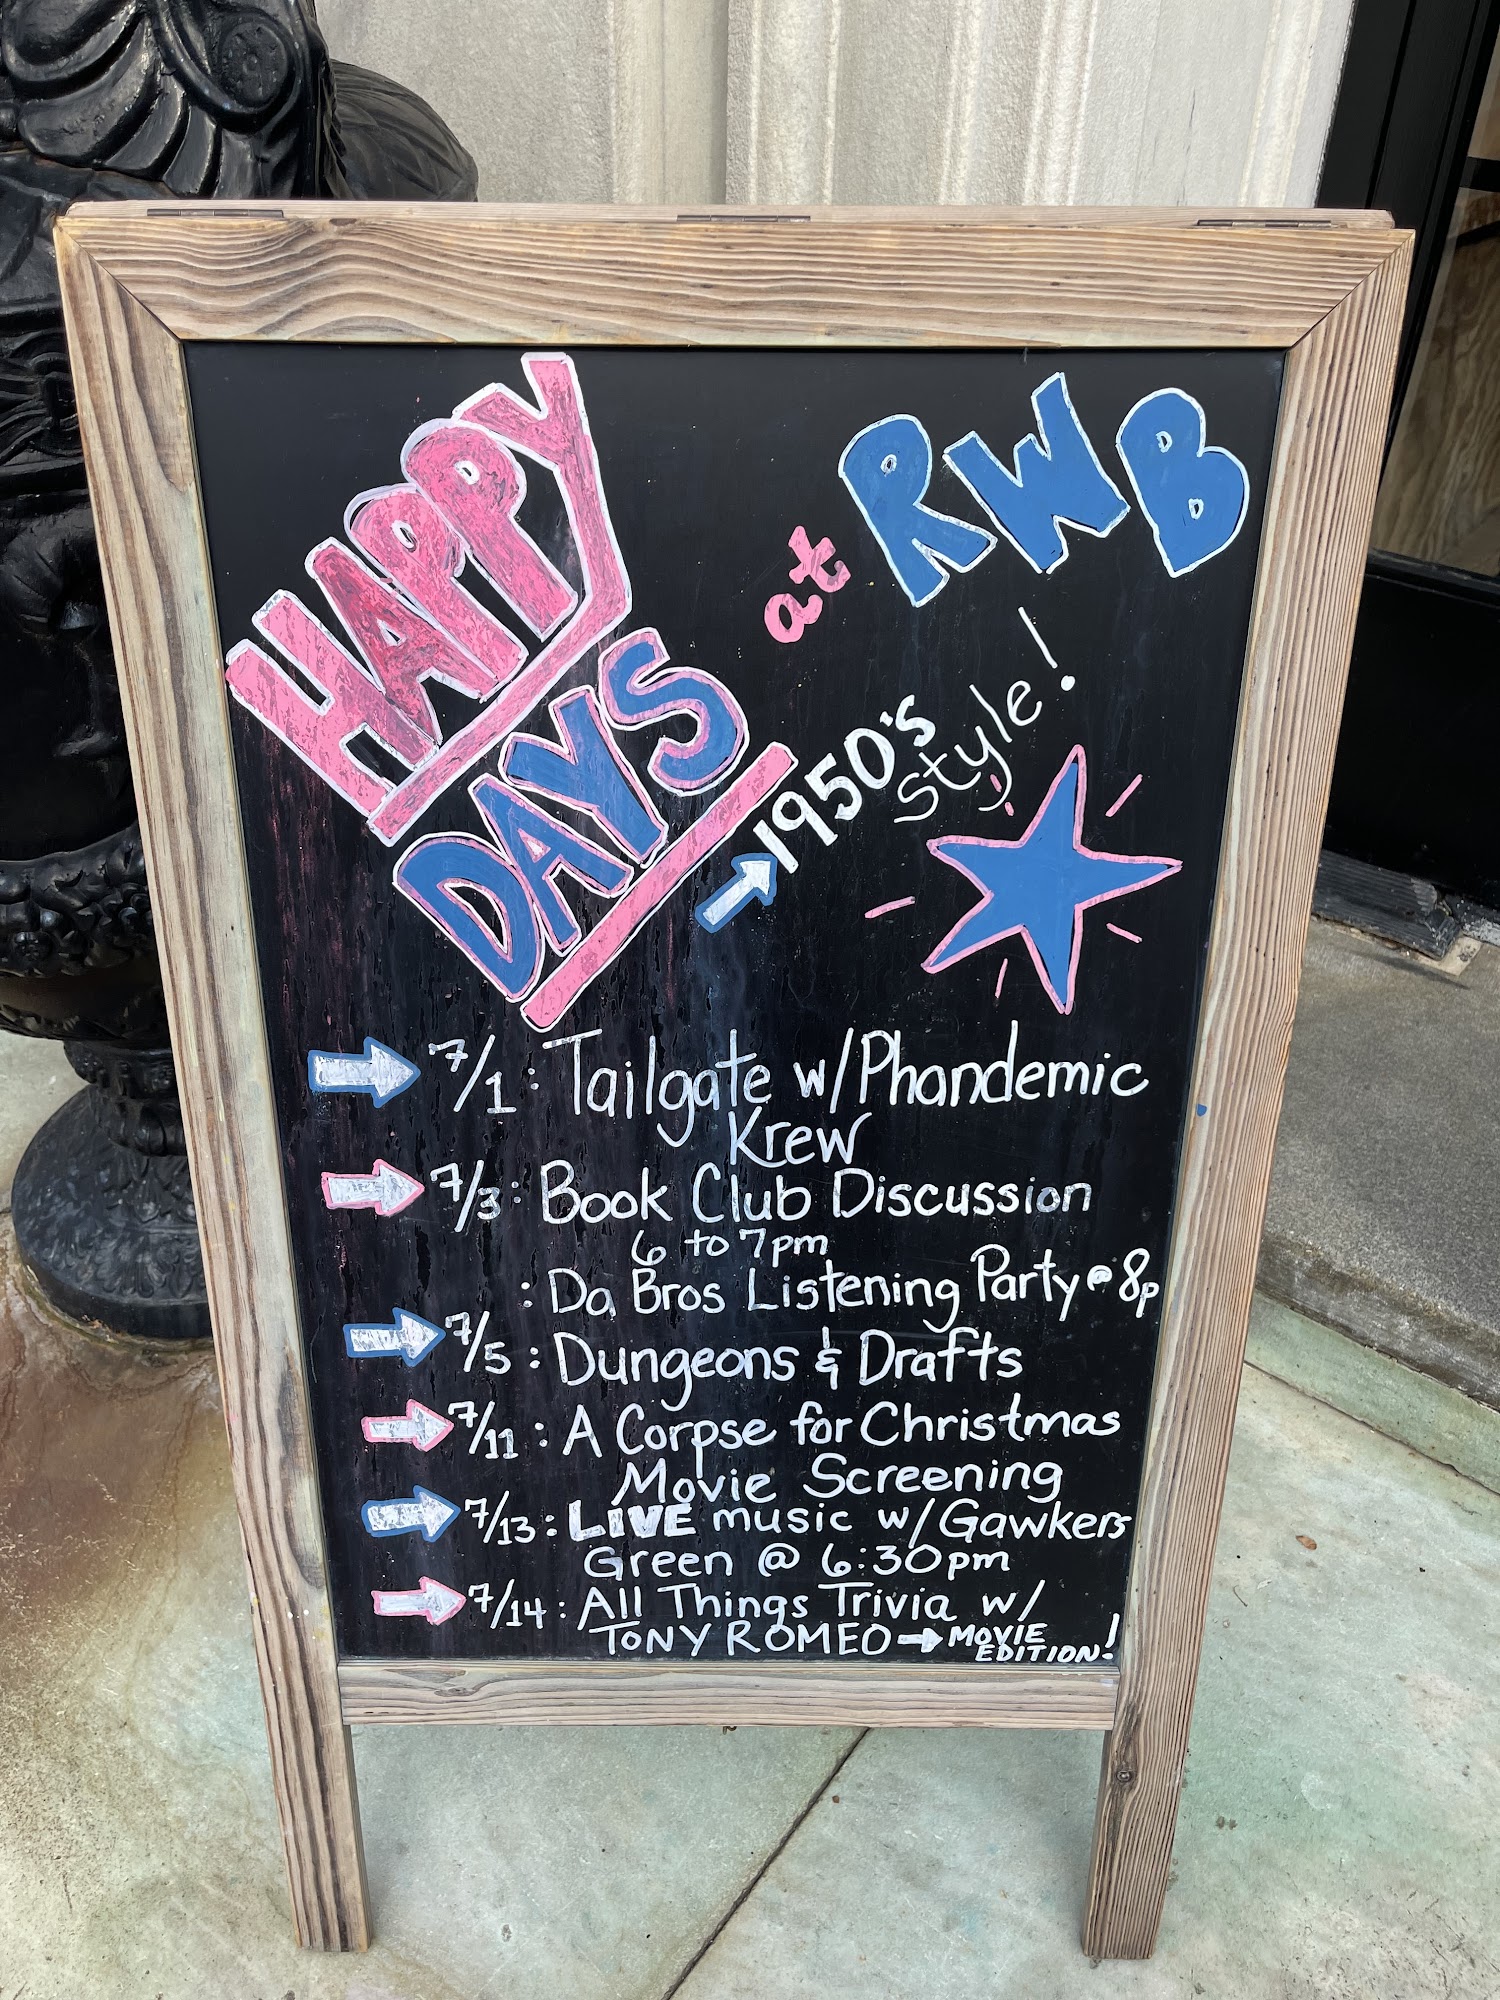 HAPPY
DAYS
at RWB
1950's
style!
7/1: Tailgate w/Phandemic
Krew
7/3: Book Club Discussion
6 to 7pm
: Da Bros Listening Party @ 8p
7/5: Dungeons & Drafts
7/11: A Corpse for Christmas
Movie Screening
7/13: LIVE music w/Gawkers
Green @ 6:30pm
7/14: All Things Trivia w/
TONY ROMEO → MOVIE
EDITION!